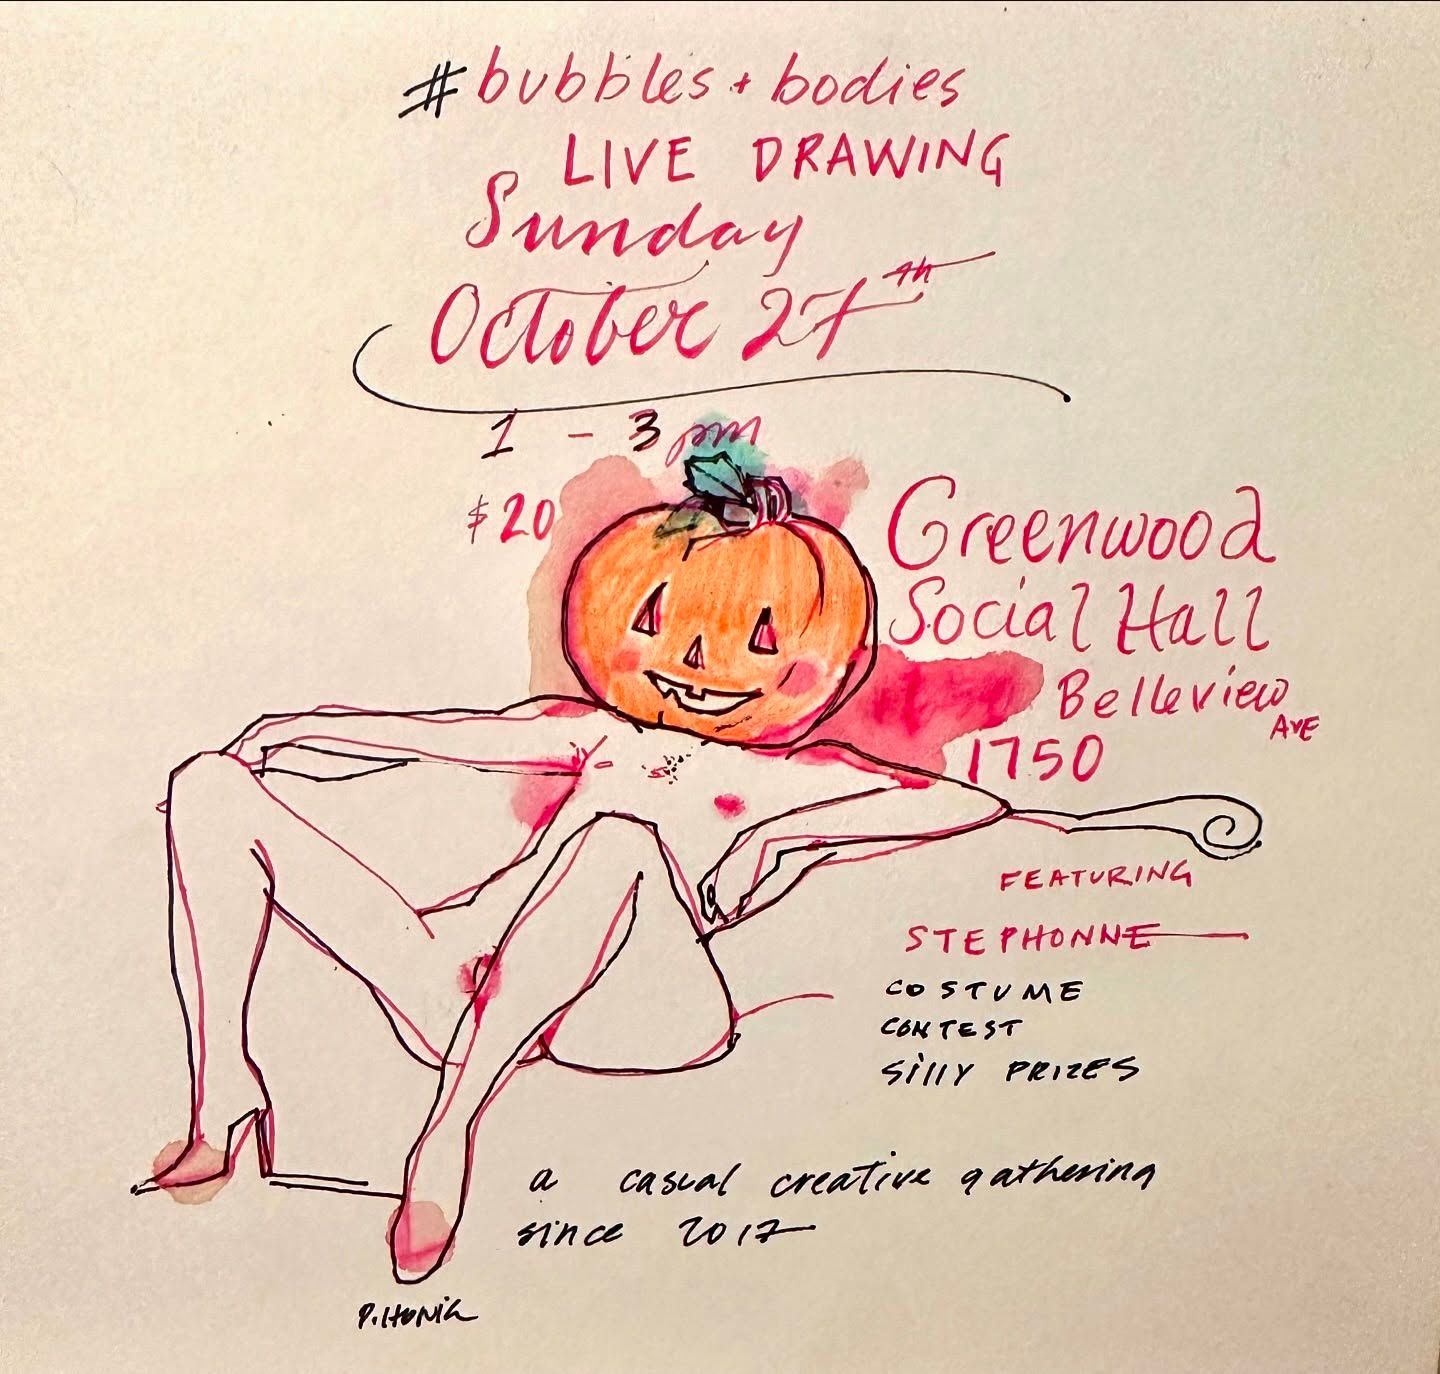 #bubbles + bodies
LIVE DRAWING
Sunday
October 27th
1 - 3 pm
$20
Greenwood
Social Hall
Belleview
AVE
1750
FEATURING
STEPHONNE
COSTUME
CONTEST
SILLY PRIZES
a casual creative gathering
since 2017
P. HONIG